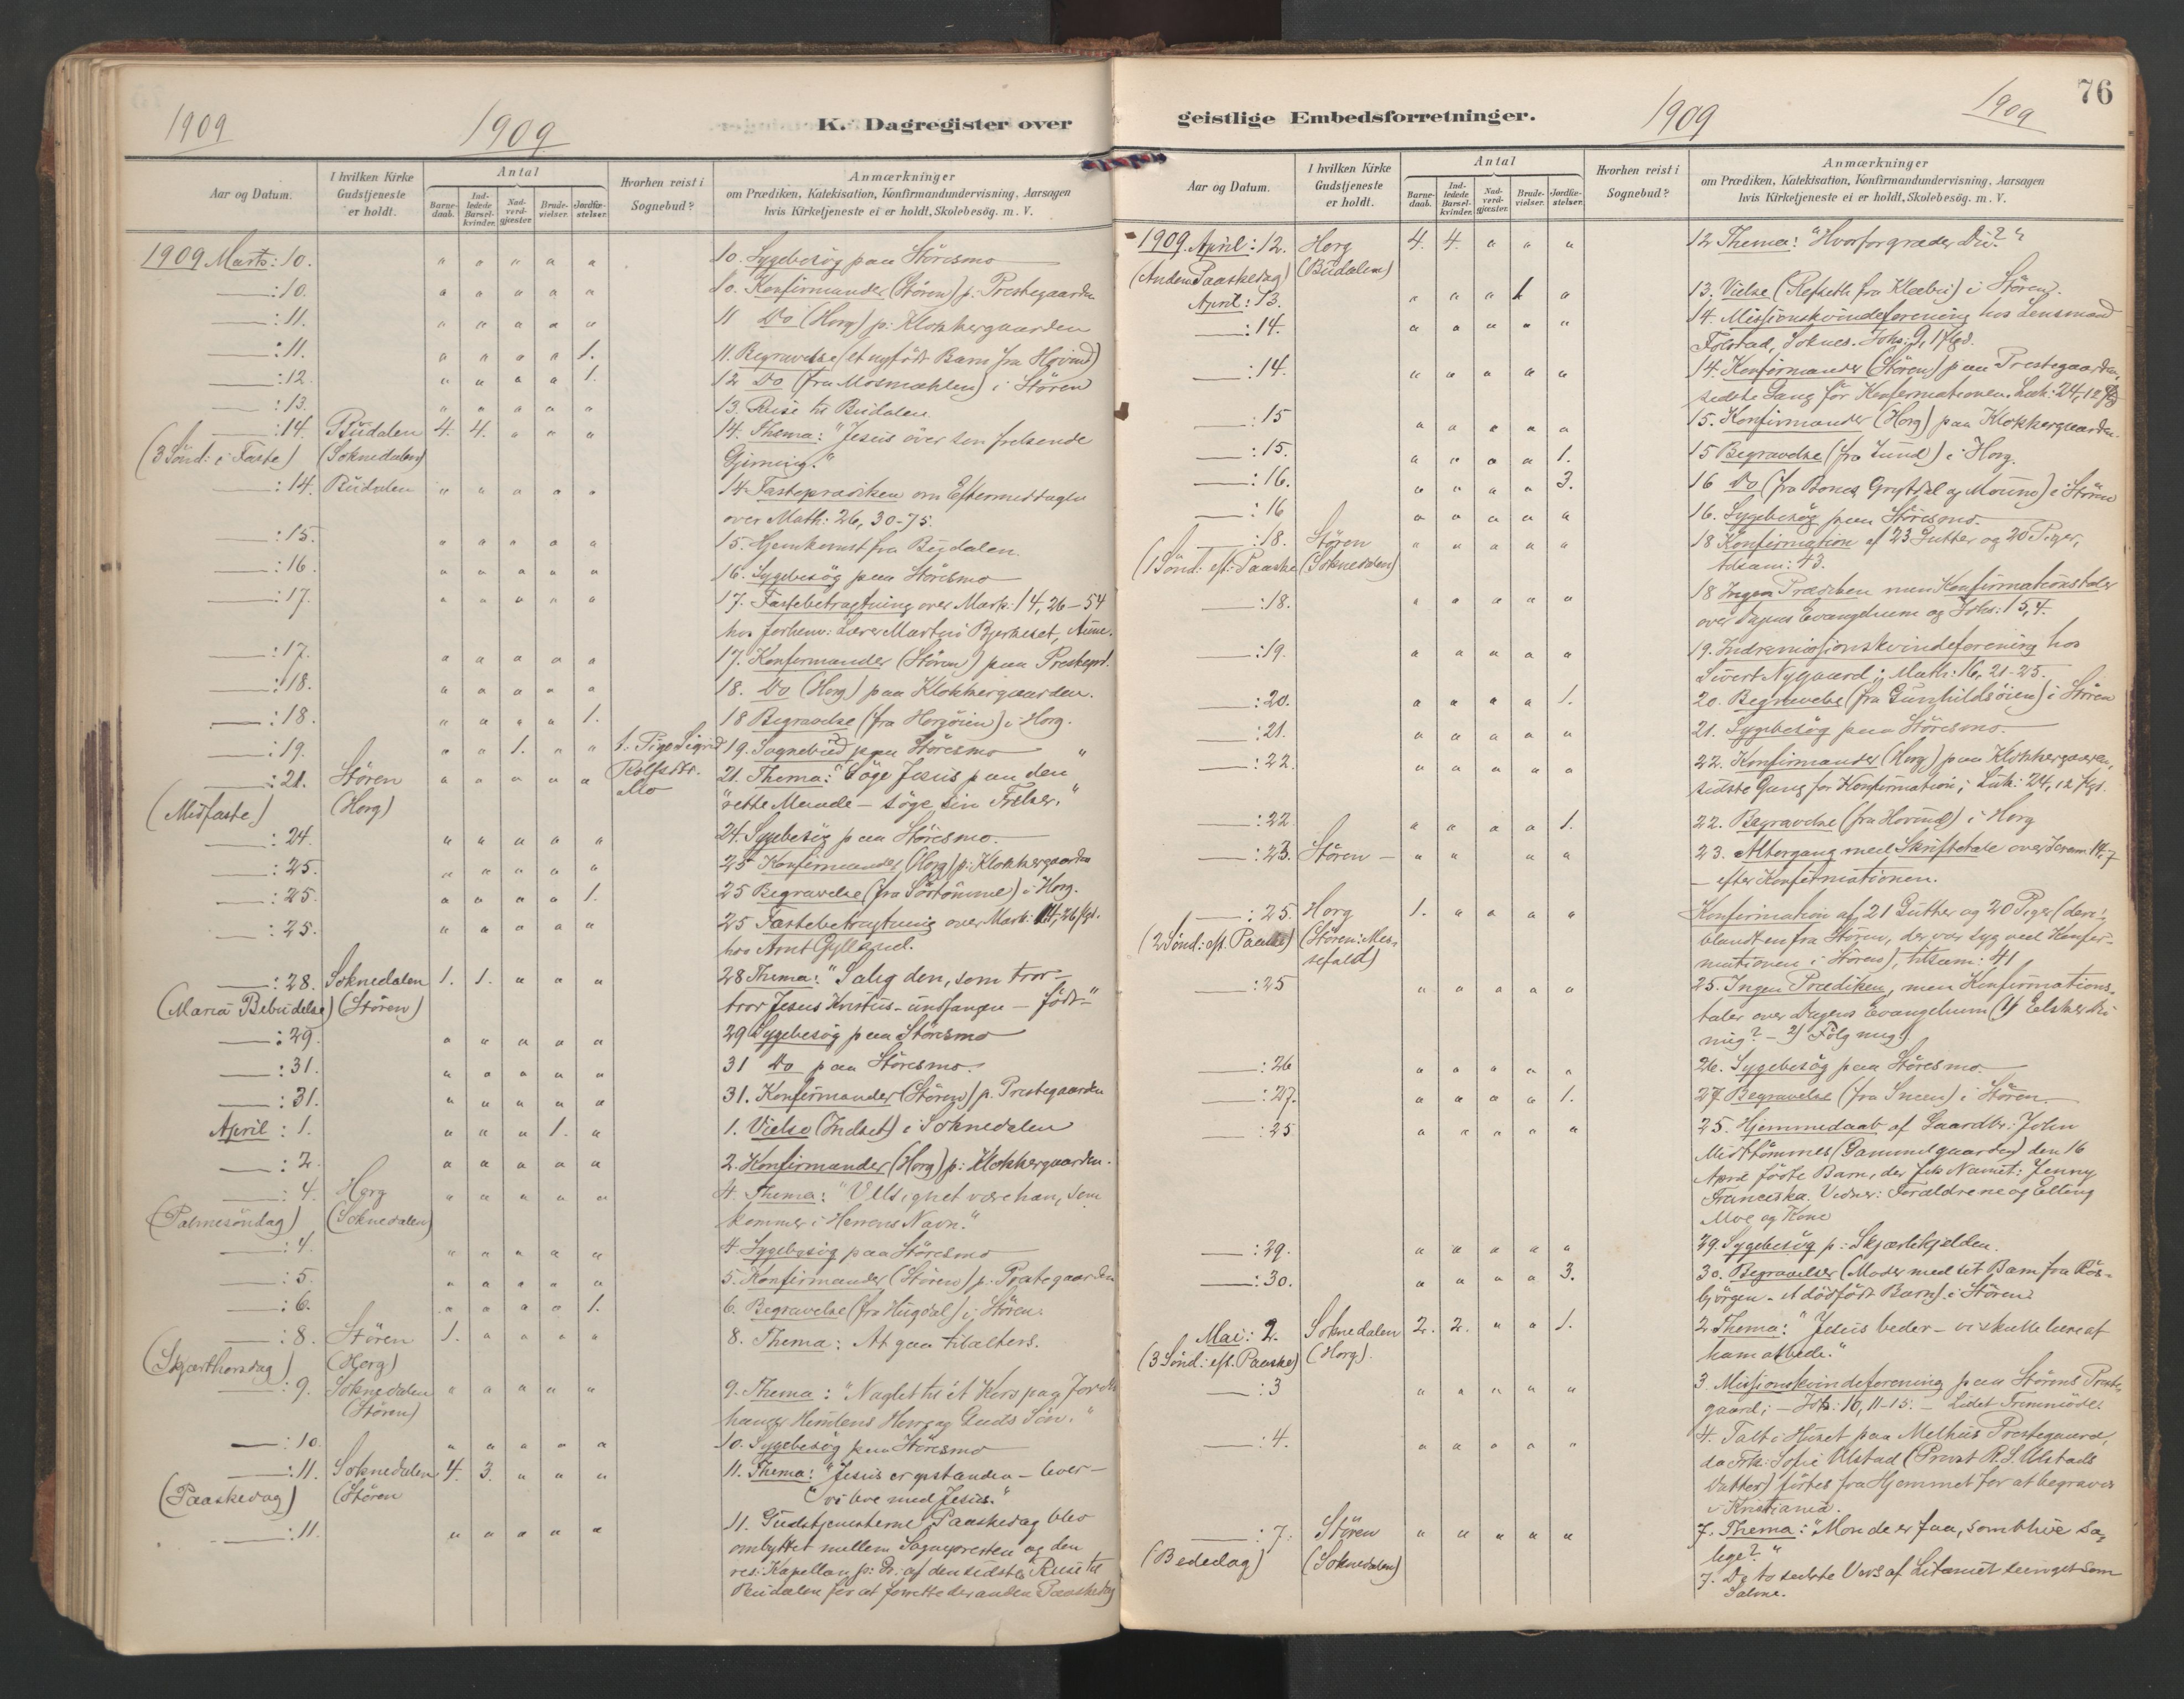 1909
1909
K. Dagregister over
Aar og Datum.
I hvilken Kirke
Gudstjeneste
er holdt.
Antal
Barne-
daab.
Ind-
ledede
Barsel-
kvinder.
Nad-
verd-
gjæster.
Brude-
vielser.
Jordfæ-
stelser.
Hvorhen reist i
Sognebud?
Anmærkninger
om Prædiken, Katekisation, Konfirmandundervisning, Aarsagen
hvis Kirketjeneste ei er holdt, Skolebesög. m. V.
1909 Marts: 10. " " " " " 10. Sygebesög paa Störesmo
: 10. " " " " " 10. Konfirmander (Stören) p: Prestegaarden
: 11. " " " " " 11 Do (Horg) p: Klokkergaarden
: 11. " " " " 1. 11. Begravelse (et nyfödt Barn fra Hovind)
: 12. " " " " 1. 12 Do (fra Mosmælen) i Stören
: 13. " " " " " 13. Reise til Budalen.
: 14. Budalen 4. 4. " " " 14. Thema: "Jesus över sen frelsende
(3 Sönd: i Faste) (Soknedalen) Gjerning."
: 14. Budalen " " " " " 14 Fasteprædiken om Eftermiddagen
over Math: 26, 30-75.
: 15. " " " " " 15. Hjemkomst fra Budalen.
: 16. " " " " " 16. Sygebesög paa Störesmo
: 17. " " " " " 17. Fastebetragtning over Mark: 14, 26-54
hos forhenv: Lærer Martin Bjerkeset, Aune.
: 17. " " " " " 17. Konfirmander (Stören) paa Prestegrd.
: 18. " " " " " 18. Do (Horg) paa Klokkergaarden.
: 18. " " " " 1. 18 Begravelse (fra Horgöien) i Horg.
: 19. " " 1. " " 1. Pige Sigrid 19. Sognebud paa Störesmo
: 21. Stören " " " " " Rolfsdtr. 21. Thema: "Söge Jesus paa den
Mo
(Midfaste) (Horg) "rette Maade - söge sin Frelser."
: 24. " " " " " 24. Sygebesög paa Störesmo.
: 25. " " " " " 25 Konfirmander (Horg) p: Klokkergaarden
: 25. " " " " 1. 25 Begravelse (fra Sörtömme) i Horg.
: 25. " " " " " 25 Fastebetragtning over Mark: 14, 26 flgd.
hos Arnt Gyllaune.
: 28. Soknedalen 1. 1. " " " 28 Thema: "Salig den, som tror-
(Maria Bebudelse) (Stören) tror Jesus Kristus - undfangen - födt-"
: 29. " " " " " 29 Sygebesög paa Störesmo
: 31. " " " " " 31 Do paa Störesmo.
: 31. " " " " " 31. Konfirmander (Stören) p. Prestegaarden
April : 1. " " " 1. " 1. Vielse (Indset) i Soknedalen
: 2. " " " " " 2. Konfirmander (Horg) p: Klokkergaarden.
: 4. Horg " " " " " 4. Thema: "Velsignet være han, som
(Palmesöndag) (Soknedalen) kommer i Herrens Navn."
: 4. " " " " " 4. Sygebesög paa Störesmo
: 5. " " " " " 5. Konfirmander (Stören) p: Prestegaarden
: 6. " " " " 1. 6. Begravelse (fra Hugdal) i Stören.
: 8. Stören 1. " " " " 8. Thema: At gaa tilalters.
(Skjærthorsdag) (Horg)
: 9. Soknedalen " " " " " 9. Thema: "Naglet til ét Kors paa Jorden
(Stören) hænger Himlens Herre og Guds Sön."
: 10. " " " " " 10. Sygebesög paa Störesmo
: 11. Soknedalen 4. 3. " " " 11. Thema: "Jesus er opstanden - lever -
(Paaskedag) (Stören "vi leve med Jesus."
: 11. " " " " " 11. Gudstjenesterne Paaskedag blev
ombyttet mellem Sognepresten og den
res: Kapellan p: Gr. af den sidstes Reise til
Budalen for at forrette der anden Paaskedag
geistlige Embedsforretninger.
1909
1909
76
Aar og Datum.
I hvilken Kirke
Gudstjeneste
er holdt.
Antal
Barne-
daab.
Ind-
ledede
Barsel-
kvinder.
Nad-
verd-
gjæster.
Brude-
vielser.
Jordfæ-
stelser.
Hvorhen reist i
Sognebud?
Anmærkninger
om Prædiken, Katekisation, Konfirmandundervisning, Aarsagen
hvis Kirketjeneste ei er holdt, Skolebesög. m. V.
1909. April: 12. Horg 4. 4. " " " 12 Thema: "Hvorfor græder Du?"
(Anden Paaskedag) (Budalen)
April: 13. " " " 1 " 13. Vielse (Refseth fra Klæbu) i Stören.
: 14. " " " " " 14. Missionskvindeforening hos Lensmand
Folstad, Soknes. Johs: 9, 1 flgd.
: 14. " " " " " 14. Konfirmander (Stören) paa Prestegaarden,
sidste Gang för Konfirmationen. Luk: 24, 12 flg
: 15 " " " " " 15. Konfirmander (Horg) paa Klokkergaarden.
: 15. " " " " 1. 15 Begravelse (fra Lund) i Horg.
: 16. " " " " 3. 16 Do (fra Bones, Grytdal og Mouno) i Stören
: 16 " " " " " 16. Sygebesög paa Störesmo.
: 18. Stören " " " " " 18 Konfirmation af 23 Gutter og 20 Piger,
(1 Sönd: eft: Paaske (Soknedalen) tilsam: 43.
: 18. " " " " " 18 Ingen Prædiken men Konfirmationstaler
over Dagens Evangelium og Johs: 15, 4.
: 19. " " " " " 19. Indremissionskvindeforening hos
Sivert Nygaard; Math: 16, 21-25.
: 20. " " " " 1. 20. Begravelse (fra Gunhildsöien) i Stören
: 21. " " " " " 21. Sygebesög paa Störesmo.
: 22. " " " " " 22. Konfirmander (Horg) paa Klokkergaarden,
sidste Gang for Konfirmation; Luk: 24, 12 flgd.
: 22. " " " " 1. 22. Begravelse (fra Hovind) i Horg
: 23. Stören - " " " " 23. Altergang med Skriftetale over Jerem 14,7
- efter Konfirmationen.
: 25. Horg 1. " " " " Konfirmation af 21 Gutter og 20 Piger (der-
(2 Sönd: eft. Paaske) (Stören: Mes- blandt en fra Stören, der var syg ved Konfir-
sefald) mationen i Stören), tilsam: 41
: 25 " " " " " 25. Ingen Prædiken, men Konfirmations-
taler over Dagens Evangelium (1) Elsker Du
mig? - 2) Fölg mig).
: 26 " " " " " 26. Sygebesög paa Störesmo.
: 27. " " " " 1. 27. Begravelse (fra Sneen) i Stören.
: 25 " " " " " 25. Hjemmedaab af Gaardbr: John
Midttömmes (Gammelgaarden) den 16
April födte Barn, der fik Navnet: Jenny
Franceska. Vidner: Forældrene og Elling
Moe og Kone
: 29. " " " " " 29. Sygebesög p: Skjærlikjelden.
: 30. " " " " 3. 30. Begravelser (Moder med sit Barn fra Rös-
björgen - et dödfödt Barn) i Stören.
Mai: 2. Soknedalen 2. 2. " " 1. 2 Thema: "Jesus beder - vi skulle lære af
(3 Sönd: eft. Paaske) (Horg). ham at bede."
: 3 " " " " " 3. Missionskvindeforening paa Störens Preste-
gaard; - Joh: 16, 11-15. - Lidet Fremmöde.
: 4. " " " " " 4. Talt i Huset paa Melhus Prestegaard,
da Frk: Sofie Ulstad (Provst R. S. Ulstads
Datter) förtes fra Hjemmet for at begraves
i Kristiania.
: 7. Stören " " " " " 7. Thema: "Mon de er faa, som blive sa-
(Bededag) (Soknedalen) lige?"
7. De to sidste Vers af Litaniet sunget som
Salme.